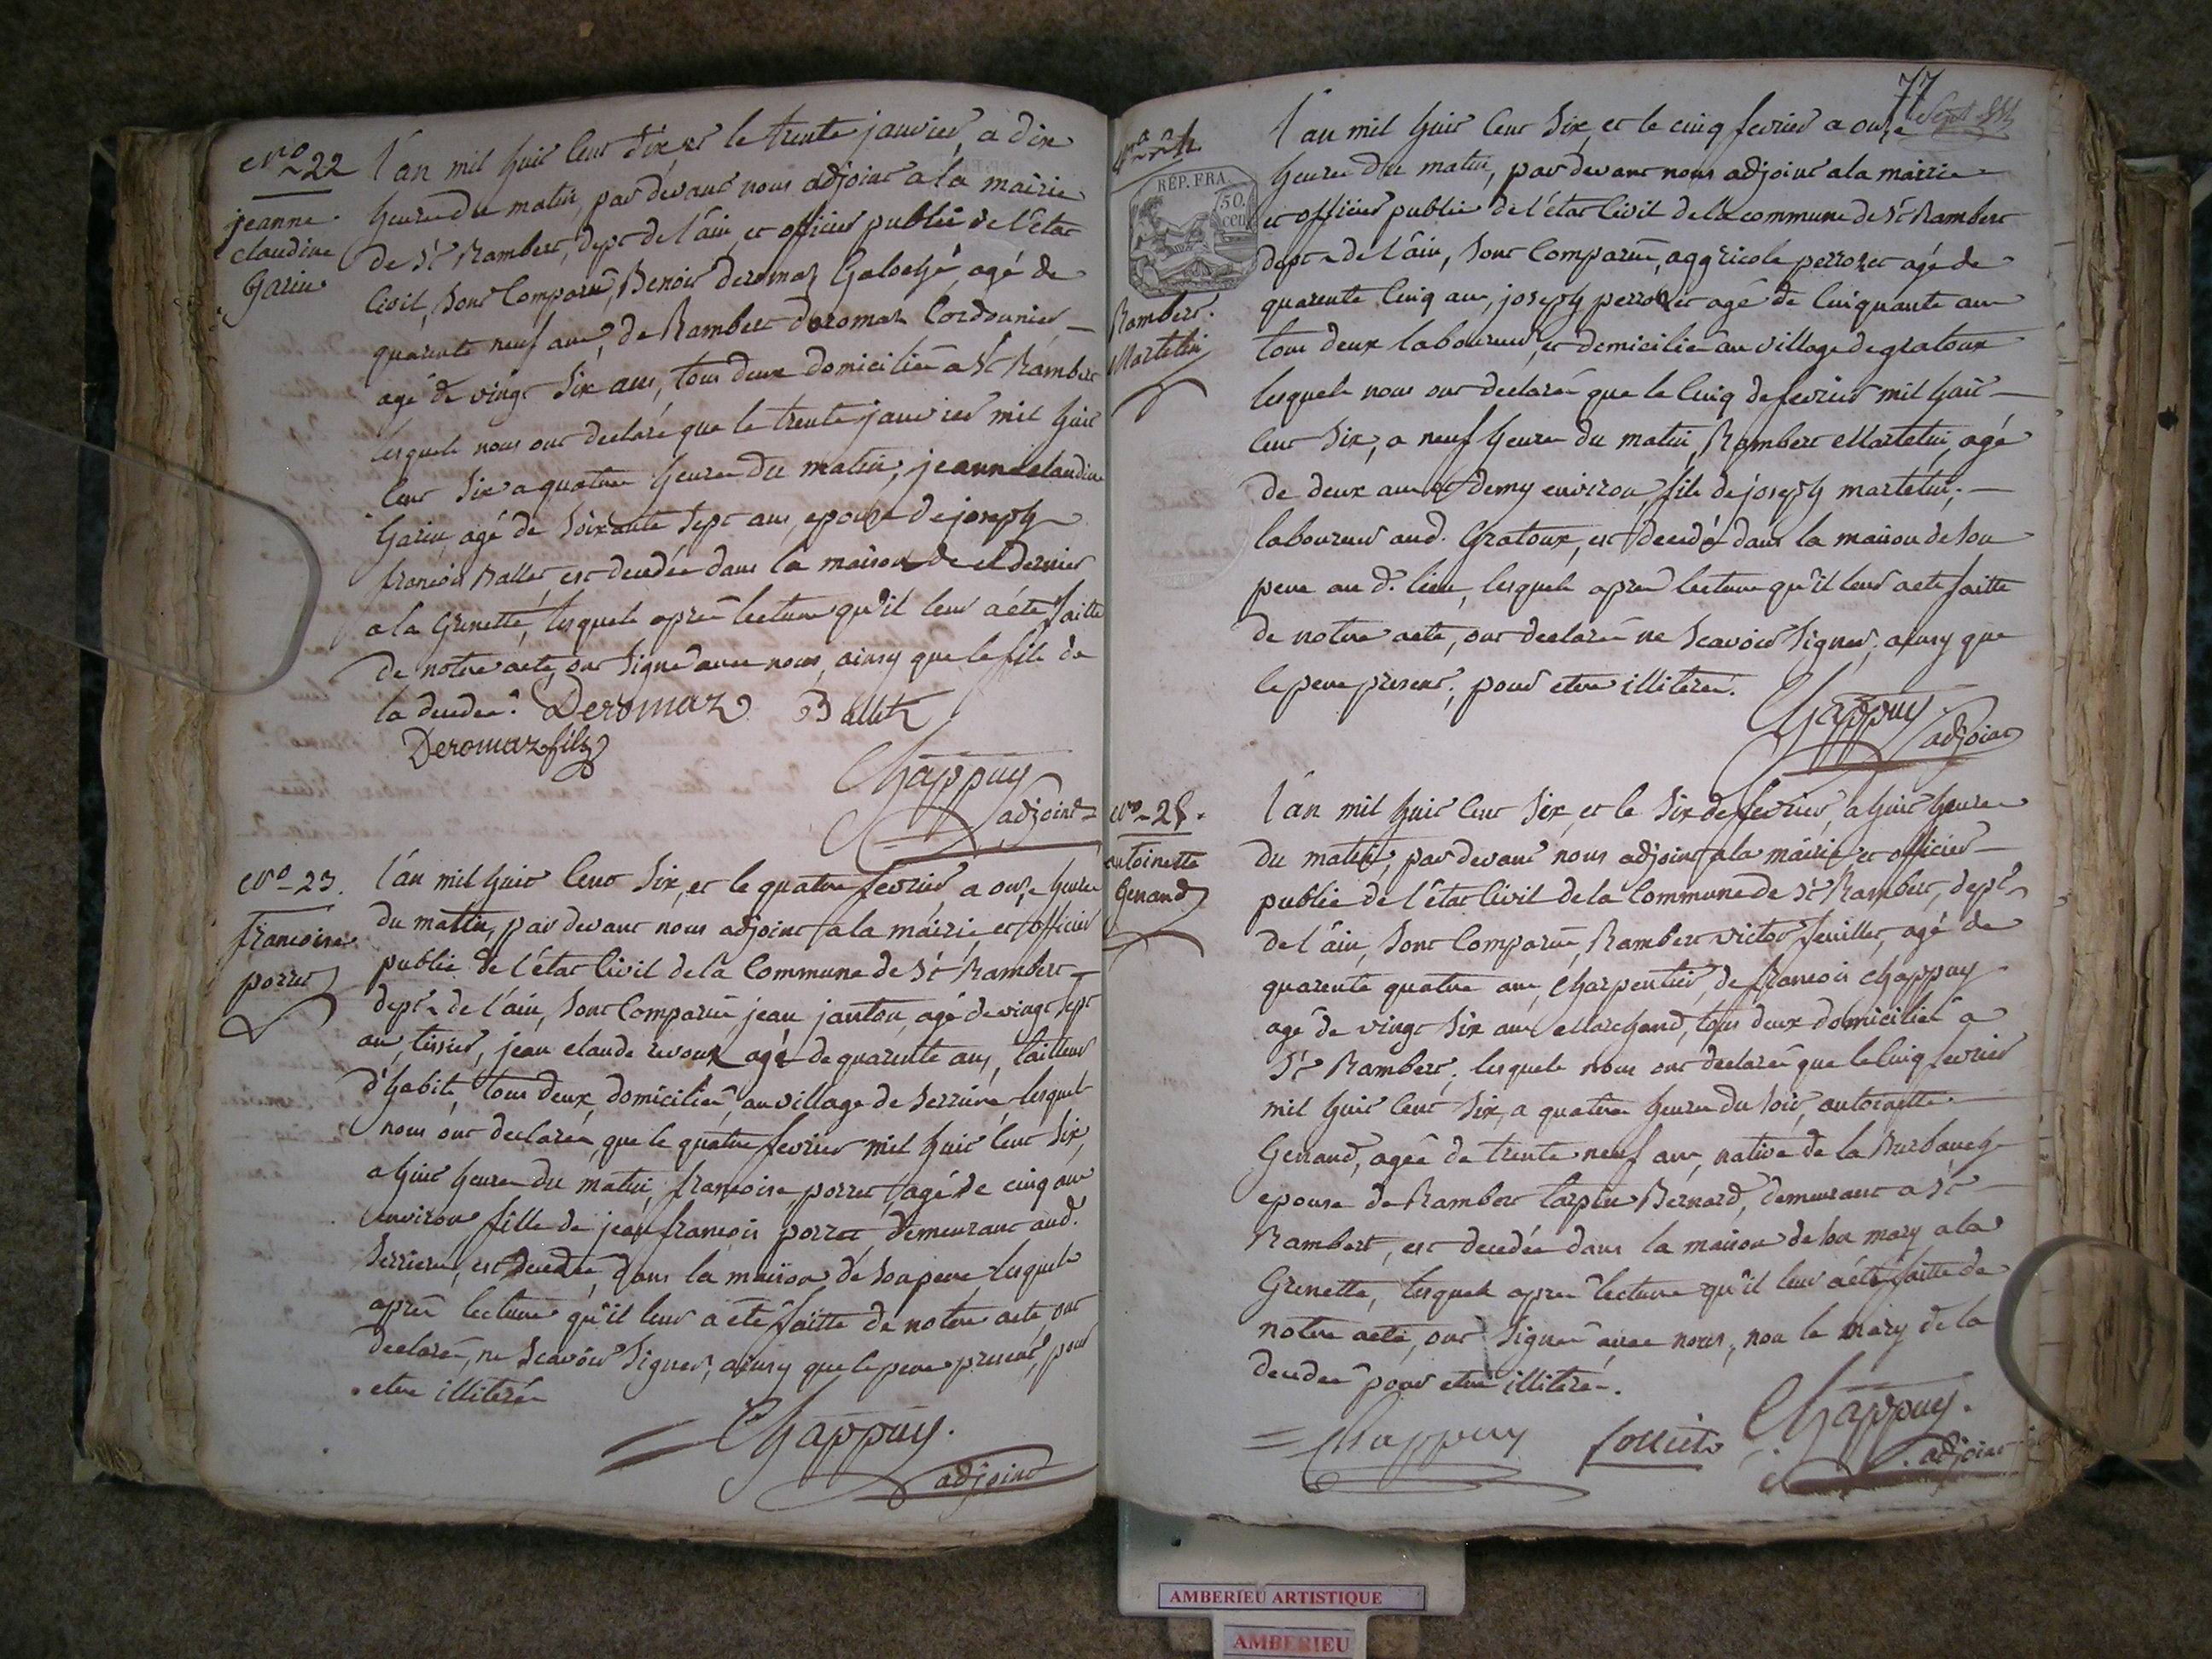 N.o 22
jeanne
claudine
Garin
l'an mil huit cent six, et le trente janvier, a dix
heures du matin, par devant nous adjoint a la mairie
de St Rambert, dept de l'ain, et officier public de l'état
Civil, sont Comparû, Benoit deromaz Galoché, agé de
quarente neuf ans, de Rambert deromaz Cordonnier
agé de vingt six ans, tous deux domiciliés a St Rambert
lesquels nous ont declaré que le trente janvier mil huit
cent six a quatre heures du matin, jeanne claudine
Garin, agé de soixante sept ans, epouse de joseph
françois Ballet, est decedée dans la maison de ce dernier
a la Grenette, lesquels après lecture qu'il leur a été faitte
de notre acte, ont signé avec nous, ainsy que le fils de
la decedée. Deromaz Ballet
Deromaz fils
Chappuy
adjoint
N.o 23.
francoise
porret
l'an mil huit cent six, et le quatre fevrier, a onze heures
du mattin, par devant nous adjoint a la mairie et officier
public de l'état Civil de la Commune de St Rambert
dept de l'ain, sont Comparûs jean janton, agé de vingt sept
ans, tissier, jean claude revoux agé de quarente ans, tailleur
d'habits, tous deux, domiciliés, au village de serriere lesquels
nous ont declarés, que le quatre fevrier mil huit cent six,
a huit heures du matin, francoise porret, agé de cinq ans
environs fille de jean françois porret, demeurant aud.
serriere, est decedée, dans la maison de son pere lesquels
après lecture qu'il leur a été faitte de notre acte ont
declaré, ne scavoir signer, ainsy que le pere present, pour
etre illiteré
Chappuy.
adjoint
77
N.o 24
REP. FRA.
50.
cen.
Rambert
Martelin
l'an mil huit cent six, et le cinq fevrier a onze
heures du matin, par devant nous adjoint a la mairie
et officier public de l'état Civil de la commune de St Rambert
dept de l'ain, sont Comparû, aggricole perrozet agé de
quarente cinq ans, joseph perrozet agé de cinquante ans
tous deux laboureur, et domiciliés au village de gratoux
lesquels nous ont declarés que le cinq de fevrier mil huit
cent six, a neuf heures du matin, Rambert Martelin, agé
de deux ans et demy environ, fils de joseph martelin,
laboureur aud. Gratoux, est decedé dans la maison de son
pere au d. lieu, lesquels après lecture qu'il leur a ete faitte
de notre acte, ont declarés ne scavoir signer, ainsy que
le pere present, pour etre illiteré.
Chappuy
adjoint
N.o 25.
antoinette
Genand
l'an mil huit cent six, et le six de fevrier, a huit heures
du matin, par devant nous adjoint a la mairie et officier
public de l'état Civil de la Commune de St Rambert, dept
de l'ain, sont Comparû, Rambert victor feuillet, agé de
quarente quatre ans, Charpentier, de francois chappuy
agé de vingt six ans Marchand, tous deux domiciliés a
St Rambert, lesquels nous ont declarés que le cinq fevrier
mil huit cent six, a quatre heures du soir, antoinette
Genand, agée de trente neuf ans, native de la Burbanch
epouse de Rambert tarpin Bernard, demeurant a St
Rambert, est decedée dans la maison de son mary a la
Grenette, lesquels après lecture qu'il leur a été faitte de
notre acte, ont signés avec nous, non le mary de la
decedée pour etre illiteré.
Chappuy Chappuy.
adjoint
AMBERIEU ARTISTIQUE
AMBERIEU